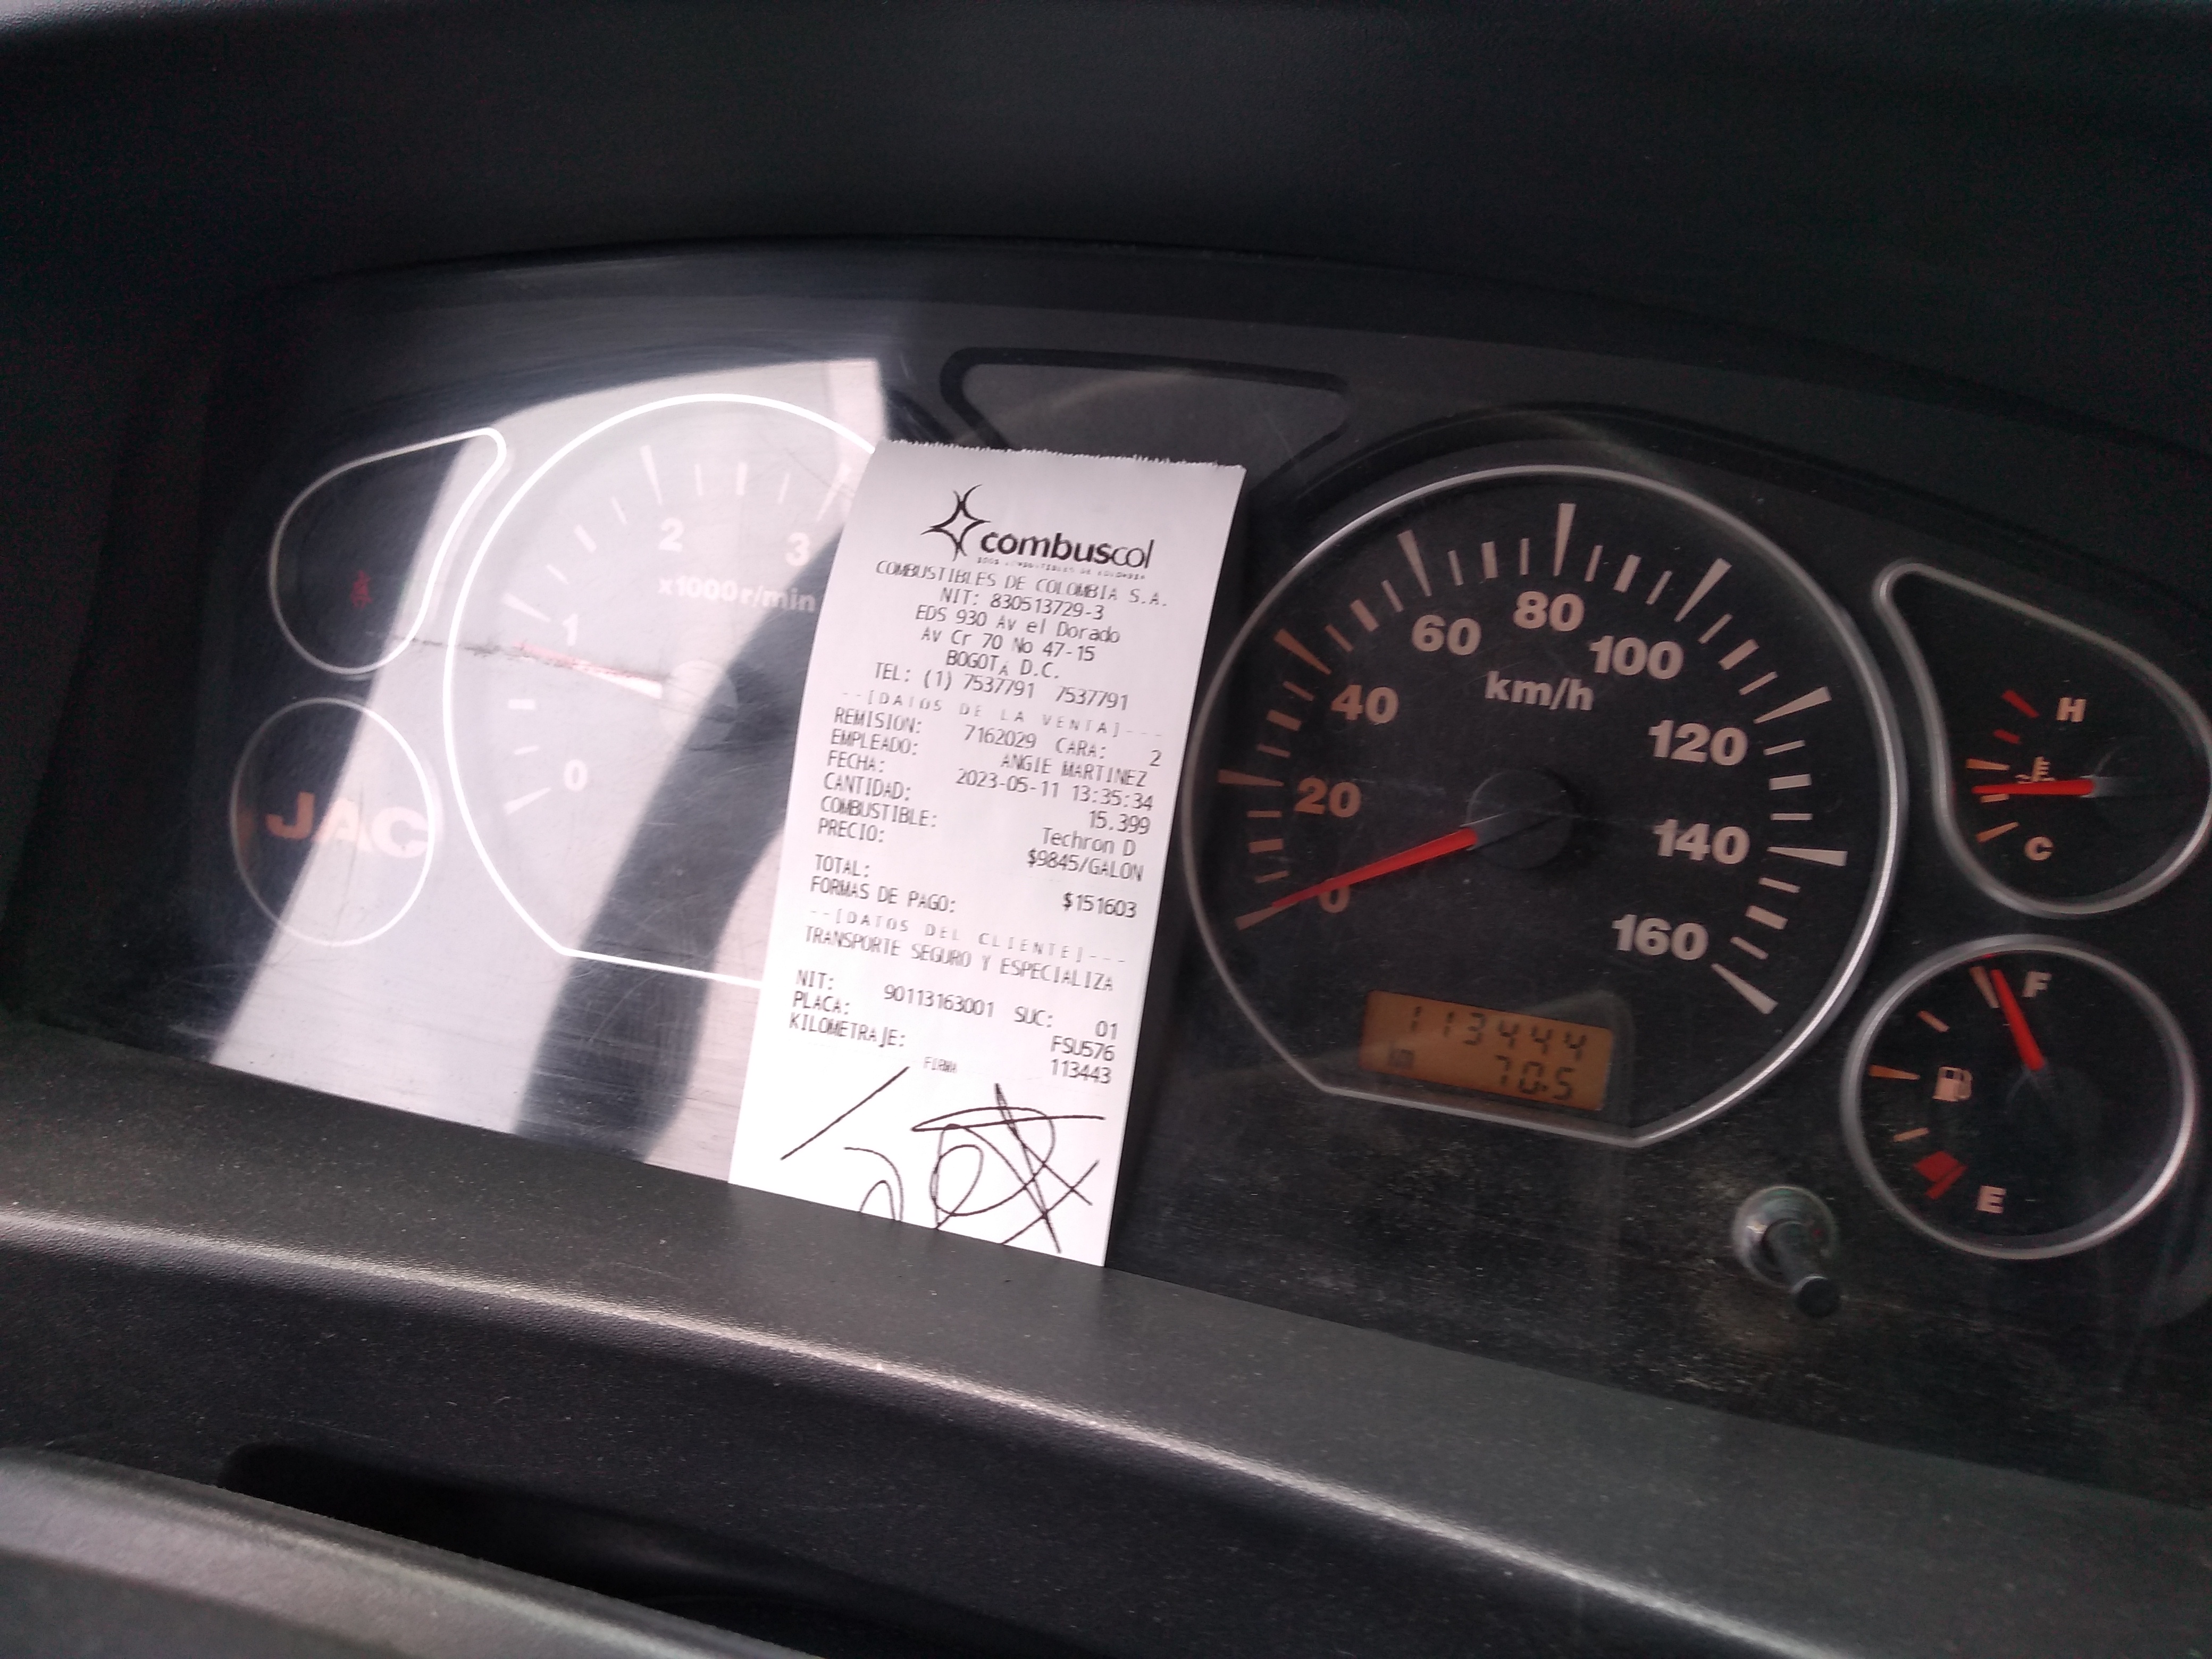 combuscol
COMBUSTIBLES DE COLOMBIA S.A.
NIT: 830513729-3
EDS 930 Av el Dorado
Av Cr 70 No 47-15
BOGOTA D.C.
TEL: (1) 7537791 7537791
--[DATOS DE LA VENTA]---
REMISION: 7162029 CARA: 2
EMPLEADO: ANGIE MARTINEZ
FECHA: 2023-05-11 13:35:34
CANTIDAD: 15.399
COMBUSTIBLE: Techron D
PRECIO: $9845/GALON
TOTAL: $151603
FORMAS DE PAGO:
--[DATOS DEL CLIENTE]---
TRANSPORTE SEGURO Y ESPECIALIZA
NIT: 90113163001 SUC: 01
PLACA: FSU576
KILOMETRAJE: 113443
FIRMA
0
1
2
3
x1000r/min
JAC
0
20
40
60
80
100
120
140
160
km/h
113444
km 70.5
H
C
F
E